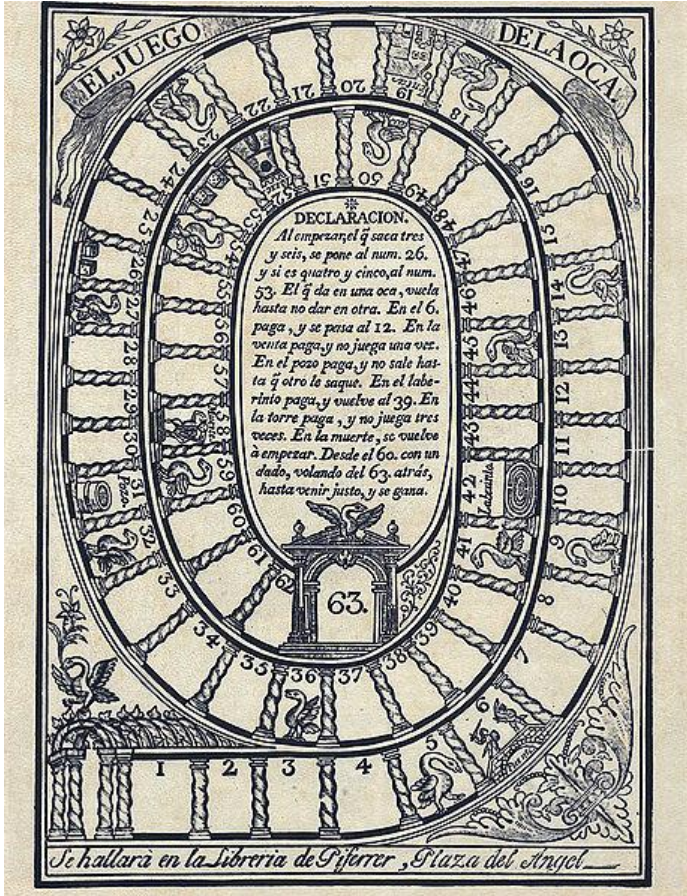 EL JUEGO
DE LA OCA.
DECLARACION.
Al empezar, el q̃ saca tres
y seis, se pone al num. 26.
y si es quatro y cinco, al num.
53. El q̃ da en una oca, vuela
hasta no dar en otra. En el 6.
paga, y se pasa al 12. En la
venta paga, y no juega una vez.
En el pozo paga, y no sale has-
ta q̃ otro le saque. En el labe-
rinto paga, y vuelve al 39. En
la torre paga, y no juega tres
veces. En la muerte, se vuelve
à empezar. Desde el 60. con un
dado, volando del 63. atrás,
hasta venir justo, y se gana.
1
2
3
4
5
6
7
8
9
10
11
12
13
14
15
16
17
18
19
20
21
22
23
24
25
26
27
28
29
30
31
Pozo
32
33
34
35
36
37
38
39
40
41
42
Labirinto
43
44
45
46
47
48
49
50
51
52
53
54
55
56
57
58
59
60
61
62
63.
Se hallarà en la Libreria de Piferrer, Plaza del Angel